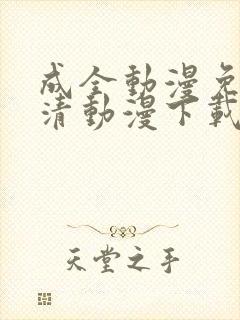 成全動漫免
清動漫下載
天堂之手